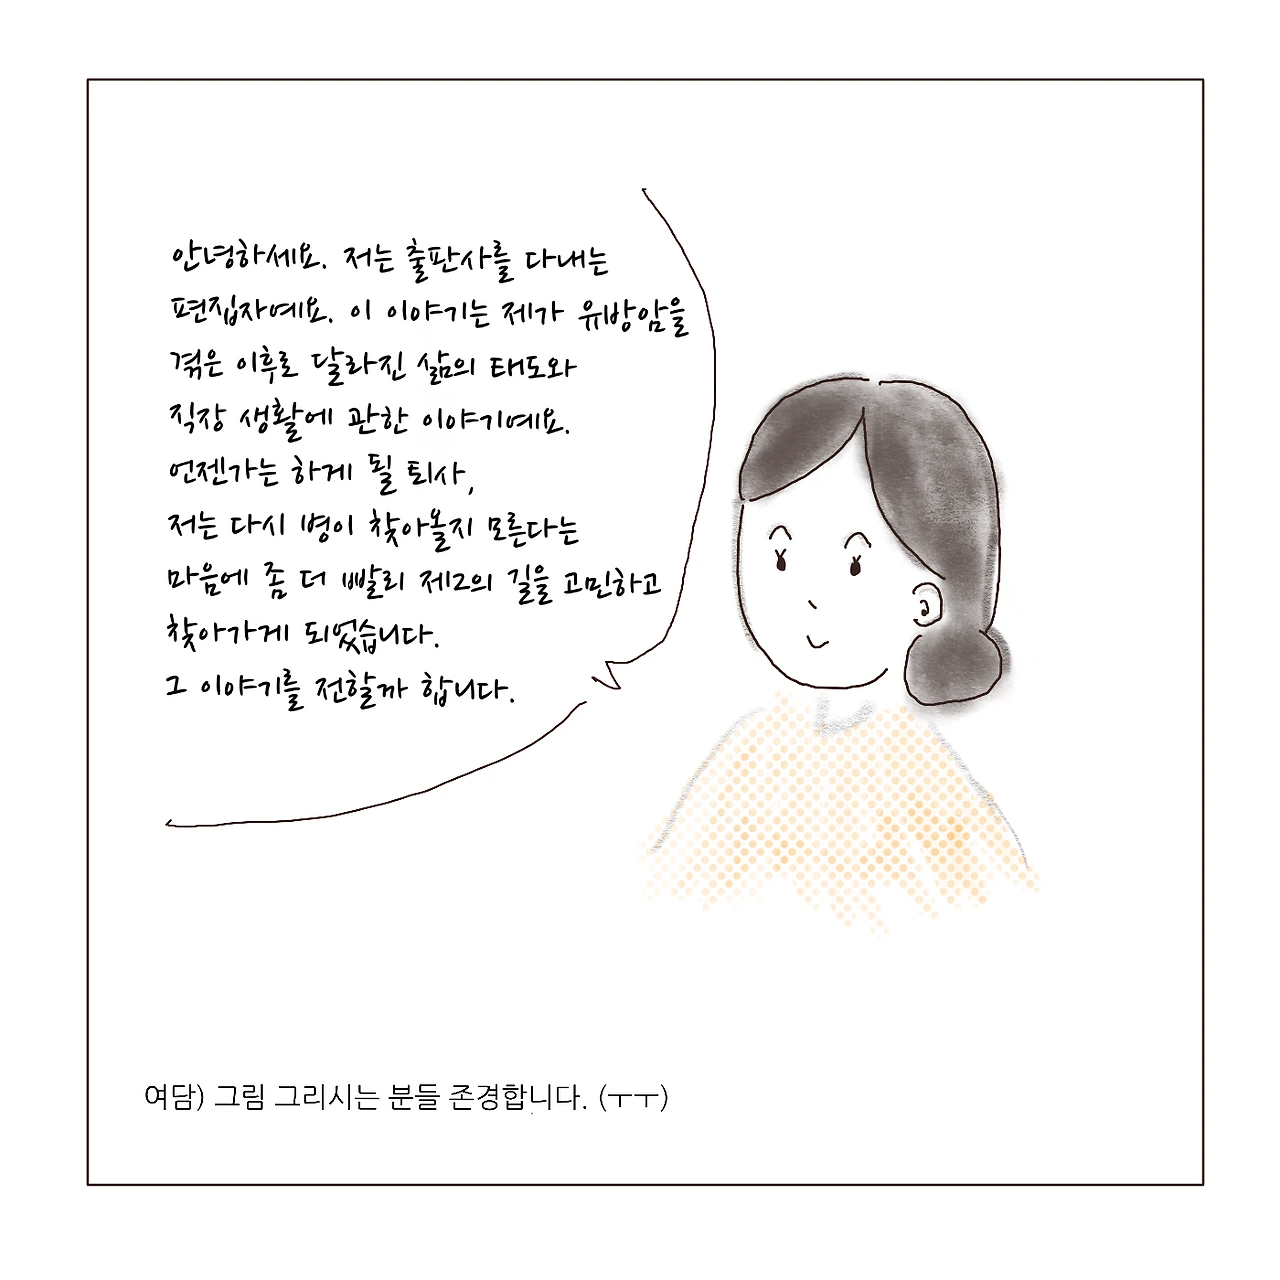 안녕하세요. 저는 출판사를 다내는
편집자예요. 이 이야기는 제가 유방암을
겪은 이후로 달라진 삶의 태도와
직장 생활에 관한 이야기예요.
언젠가는 하게 될 퇴사,
저는 다시 병이 찾아올지 모른다는
마음에 좀 더 빨리 제2의 길을 고민하고
찾아가게 되었습니다.
그 이야기를 전할까 합니다.
여담) 그림 그리시는 분들 존경합니다. (ㅜㅜ)